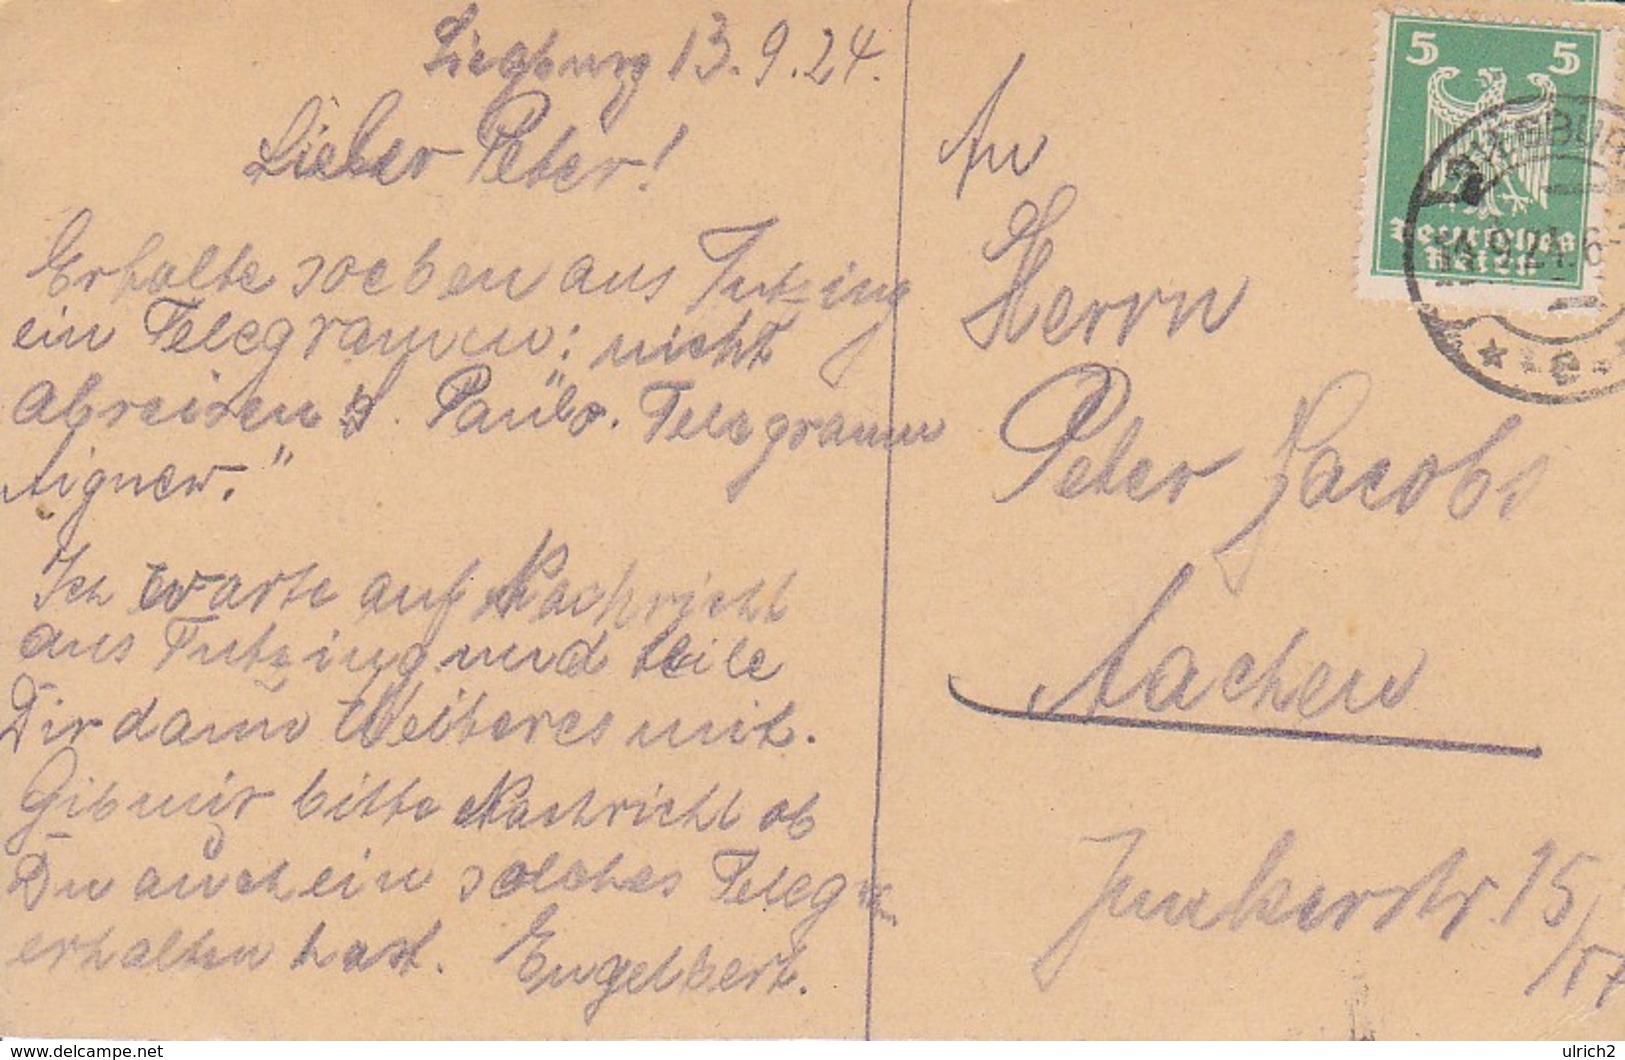 Siegburg 13.9.24.
Lieber Peter!
Erhalte soeben aus Tutzing
ein Telegramm: nicht
abreisen Telegramm
Aigner."
Ich warte auf Nachricht
aus Tutzing und teile
Dir dann Weiteres mit.
Gib mir bitte Nachricht ob
Du auch ein solches Telegr
erhalten hast. Engelbert.
An
Herrn
Peter Jacobs
Aachen
Junkerstr. 15/17
5 5
Deutsches
Reich
SIEGBUR
9.24.6-
* e
ulrich2
www.delcampe.net